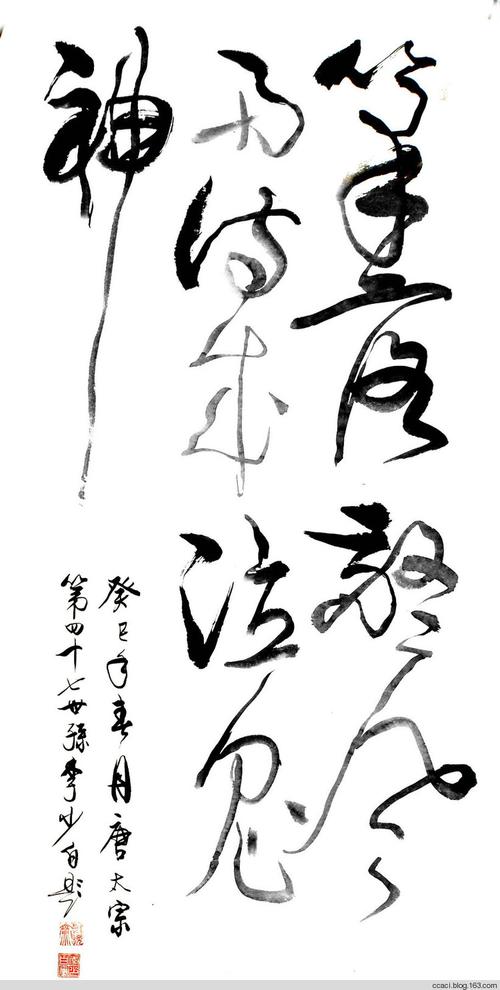 筆落驚風
雨詩成泣鬼
神
癸巳年春月唐太宗
第四十七世孫李少白題
ccaci.blog.163.com